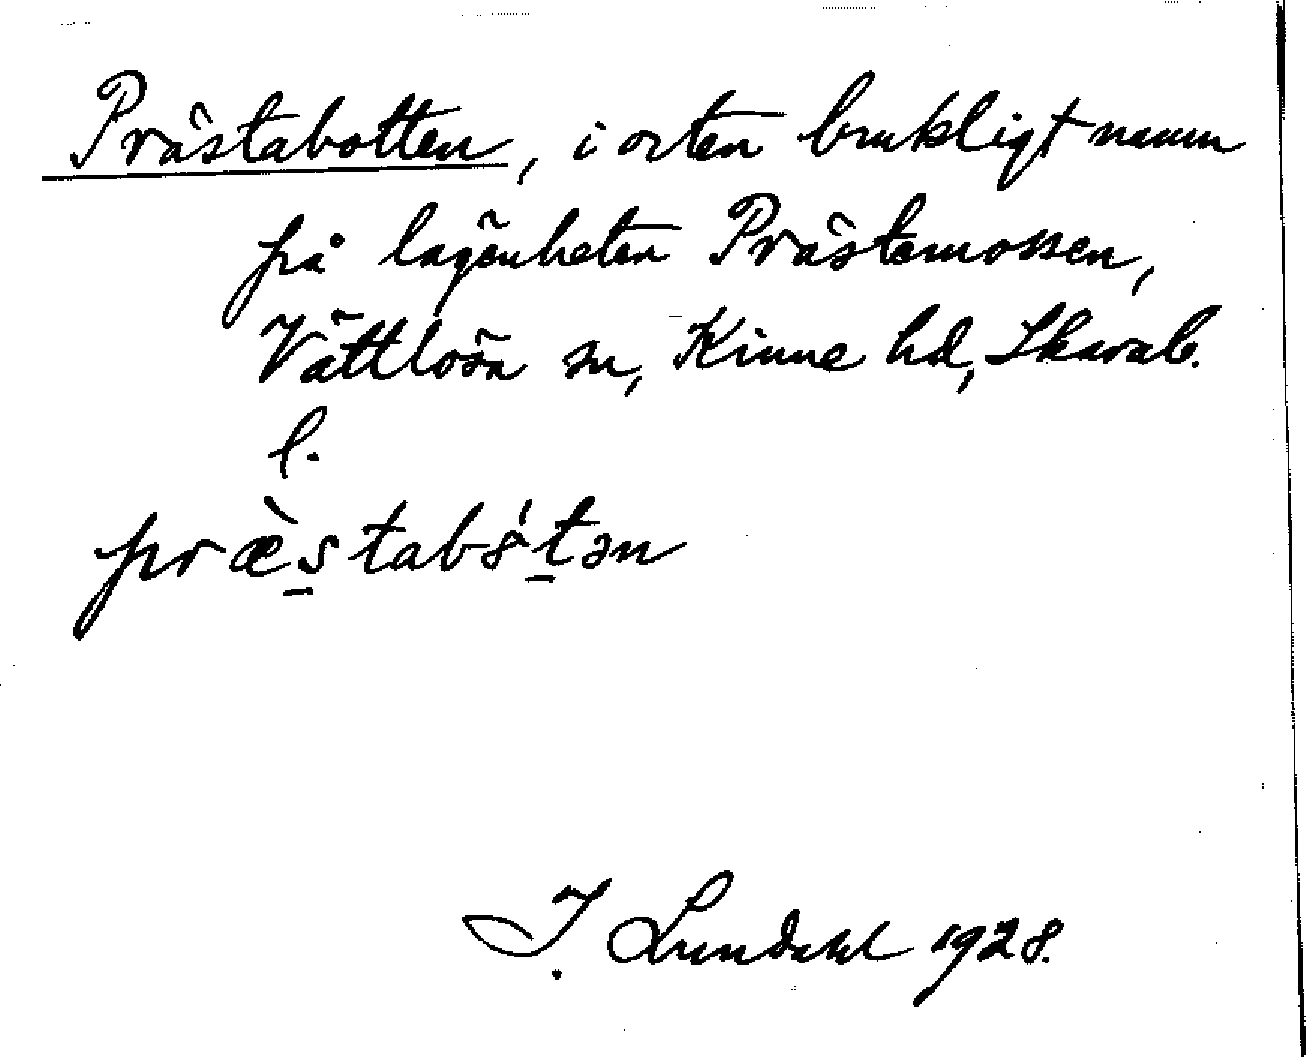 Prästabotten, i orten brukligt namn
på lägenheten Prästemossen,
Vättlösa sn, Kinne hd, Skarab.
l.
præ̀s̱tabótən
I. Lundahl 1928.